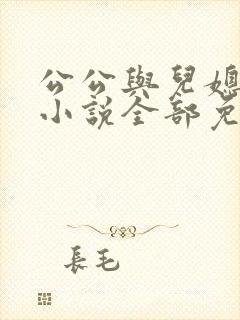 公公與兒媳
小說全部免
長毛